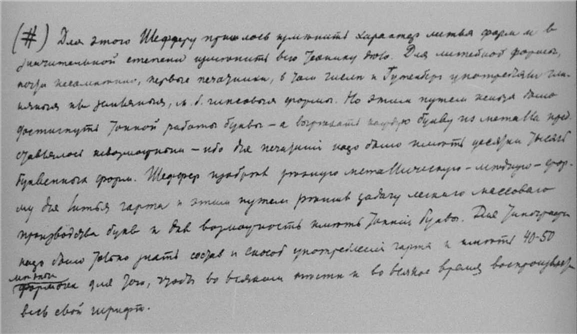 (#) Для этого Шефферу пришлось изменить характер литья форм и в
значительной степени изменить всю технику дела. Для литейной формы,
несомненно, первые печатники, в том числе и Гутенберг употребляли гли-
няные или земляные, м. б. гипсовые формы. Но этим путем нельзя было
достигнуть тонкой работы буквы – а вырезать каждую букву из металла пред-
ставлялось невозможным – ибо для печатания надо было иметь десятки тысяч
буквенных форм. Шеффер изобрел ручную металлическую – медную – фор-
му для литья гарта и этим путем решил задачу легкого массового
производства букв и дав возможность иметь тонкие буквы. Для типографии
надо было только знать состав и способ употребления гарта и иметь 40-50
медных
формочек для того, чтобы во всяком месте и во всякое время воспроизвести
весь свой шрифт.